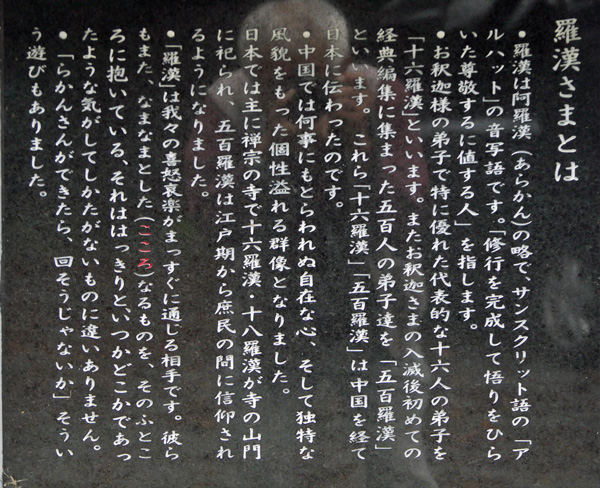 羅漢さまとは
•羅漢は阿羅漢(あらかん)の略で、サンスクリット語の「ア
ルハット」の音写語です。「修行を完成して悟りをひら
いた尊敬するに値する人」を指します。
•お釈迦様の弟子で特に優れた代表的な十六人の弟子を
「十六羅漢」といいます。またお釈迦さまの入滅後初めての
経典編集に集まった五百人の弟子達を「五百羅漢」
といいます。これら「十六羅漢」「五百羅漢」は中国を経て
日本に伝わったのです。
•中国では何事にもとらわれぬ自在な心、そして独特な
風貌をもった個性溢れる群像となりました。
日本では主に禅宗の寺で十六羅漢・十八羅漢が寺の山門
に祀られ、五百羅漢は江戸期から庶民の間に信仰され
るようになりました。
•「羅漢」は我々の喜怒哀楽がまっすぐに通じる相手です。彼ら
もまた、なまなまとした(こころ)なるものを、そのふとこ
ろに抱いている、それははっきりと、いつかどこかであっ
たような気がしてしかたがないものに違いありません。
•「らかんさんができたら、回そうじゃないか」そうい
う遊びもありました。